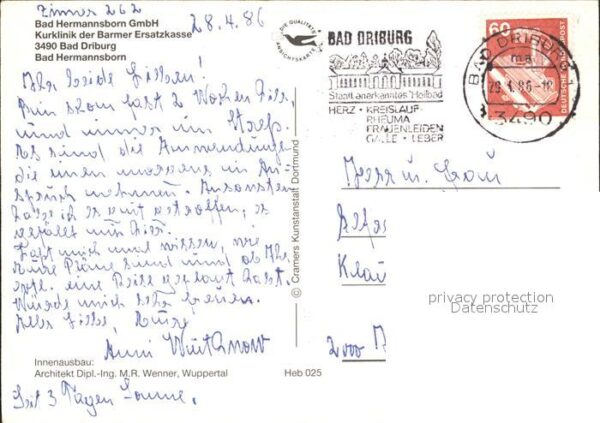 Zimmer 262
28.4.86
Bad Hermannsborn GmbH
Kurklinik der Barmer Ersatzkasse
3490 Bad Driburg
Bad Hermannsborn
Ihr beide Lieben!
Bin schon fast 2 Wochen hier,
und immer im Streß.
Es sind die Anwendungen
die einen morgens in An-
spruch nehmen. Ansonsten
habe ich es gut getroffen, es
gefällt mir hier.
Laßt mich mal wissen, wie
Eure Pläne sind und ob Ihr
evtl. eine Reise geplant habt.
Würde mich sehr freuen.
Alles Liebe, Eure
Anni
Innenausbau:
Architekt Dipl.-Ing. M.R. Wenner, Wuppertal
Heb 025
Seit 3 Tagen Sonne.
© Cramers Kunstanstalt Dortmund
DIE QUALITÄTS
ANSICHTSKARTE
BAD DRIBURG
Staatl. anerkanntes Heilbad
HERZ · KREISLAUF
RHEUMA
FRAUENLEIDEN
GALLE · LEBER
BAD DRIBURG
ma
3490
60
DEUTSCHE BUNDESPOST
Herrn u. Frau
Klau
2000
privacy protection
Datenschutz